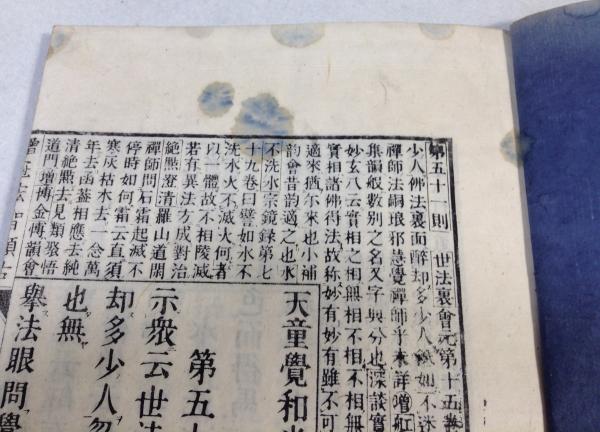 第五十一則 世法裏會元第十五
少人佛法裏面醉却多少人 如不迷
禪師法嗣瑯琊慧覺禪師乎未詳增
集韻般數別之名又字與分也深談實
妙玄八云實相之相無相不相不相無
實相諸佛得法故稱妙有妙有雖不可
適來猶尔來也小補
韵會昔韵適之也水
不洗水宗鏡錄第七
十九卷曰譬如水不
洗水火不滅火何者
以一體故不相陵滅
若有異法方成對治
絶點澄清羅山道閑
禪師問石霜起滅不
停時如何霜云直須
寒灰枯木去一念萬
年去函蓋相應去純
清絶點去見類聚悟
道門增傅金傅韻會
天童覺和
第五十
示衆云世法
却多少人忽
也無
舉法眼問覺